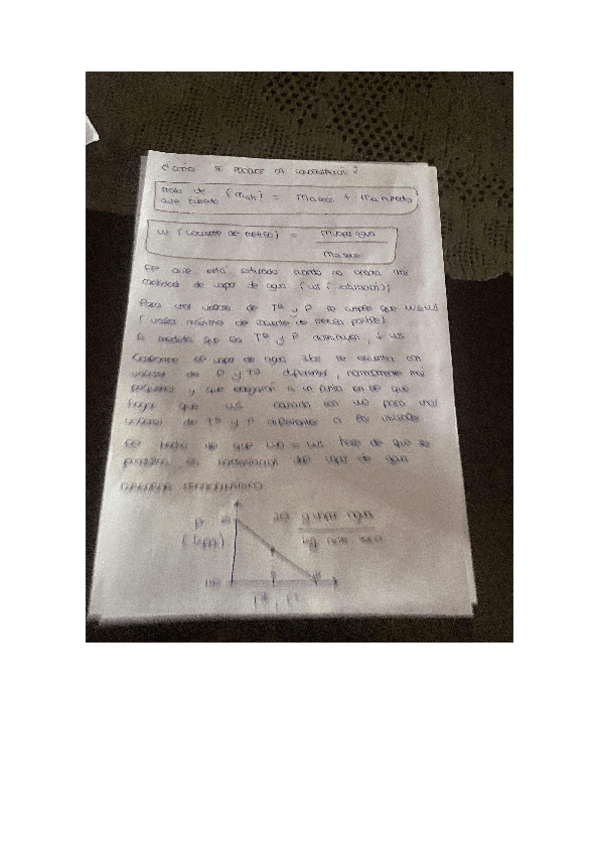 ¿Cómo se produce la condensación?
Masa de (Mah) = Ma seco + Ma
aire húmedo
w (cociente de mezcla) = M vapor agua
Ma seco
El aire está saturado cuando no acepta más
cantidad de vapor de agua (ws (saturación))
Para unos valores de Tª y P se cumple que w≤ws
(valor máximo de cociente de mezcla posible)
A medida que la Tª y P disminuyen, ↓ ws
Conforme el vapor de agua sube se encuentra con
valores de P y Tª diferentes, normalmente más
pequeños y que llegarán a un punto en el que
haga que ws coincida con w0 para unos
valores de Tª y P diferentes a los iniciales
El hecho de que w0 = ws hace de que se
produzca la condensación del vapor de agua
P
20 g vapor agua
kg aire seco